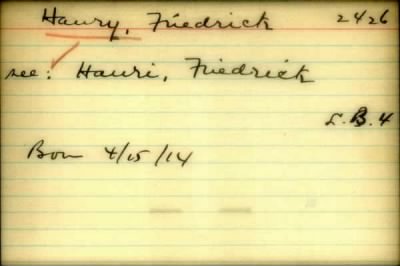 Haury, Friedrick 2426
see: Hauri, Friedrick
L.B.4
Born 4/15/14